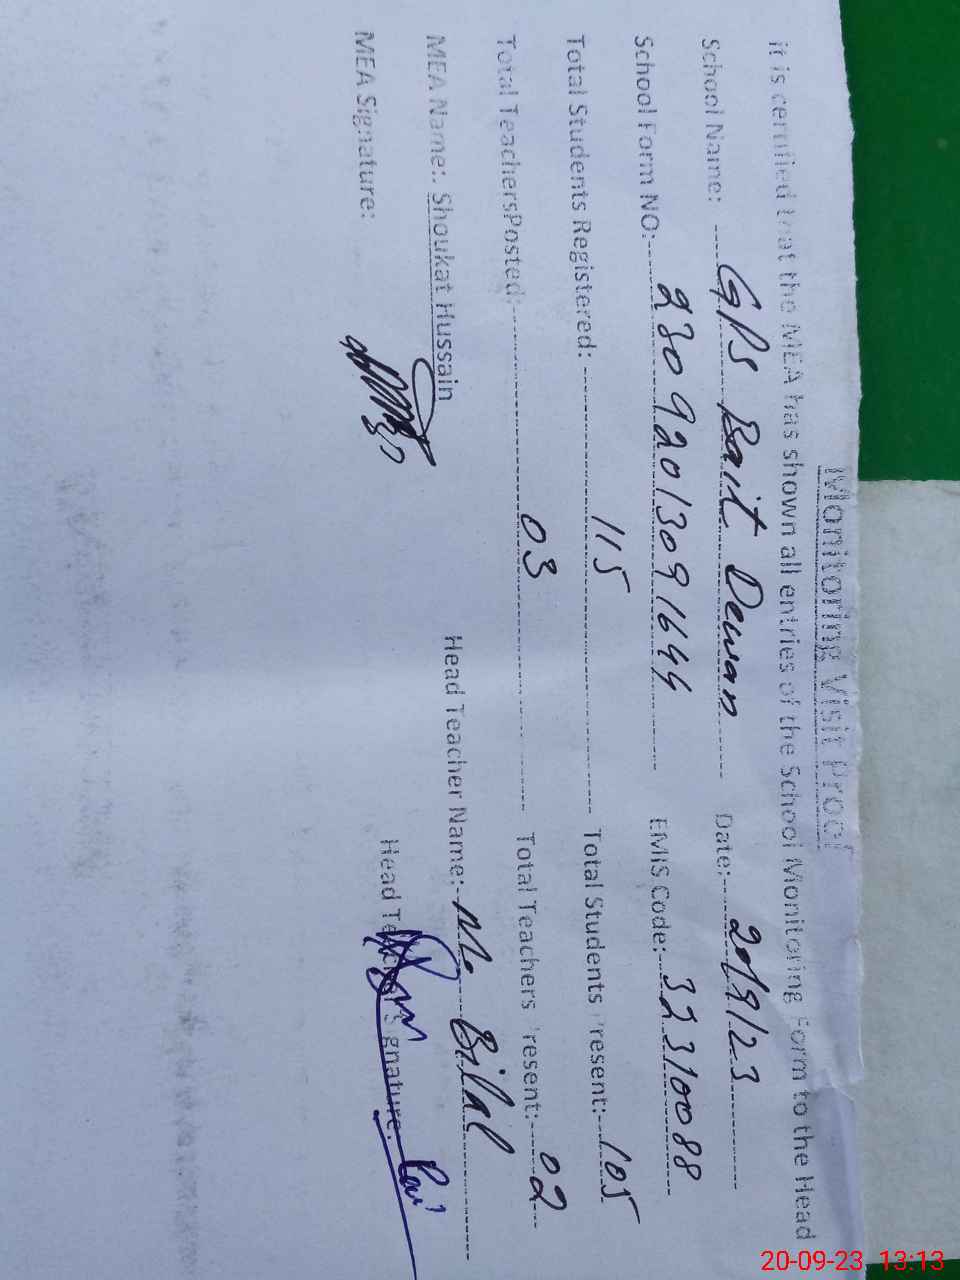 Monitoring Visit Proof
it is certified that the MEA has shown all entries of the School Monitoring Form to the Head
School Name: GPS Bait Dewan Date:- 20/9/23
School Form NO:- 23092013091644 EMIS Code:- 32310088
Total Students Registered: 115 Total Students Present:- 105
Total TeachersPosted: 03 Total Teachers Present:- 02
MEA Name:. Shoukat Hussain Head Teacher Name:- M. Bilal
MEA Signature: Head Teacher Signature:
20-09-23 13:13